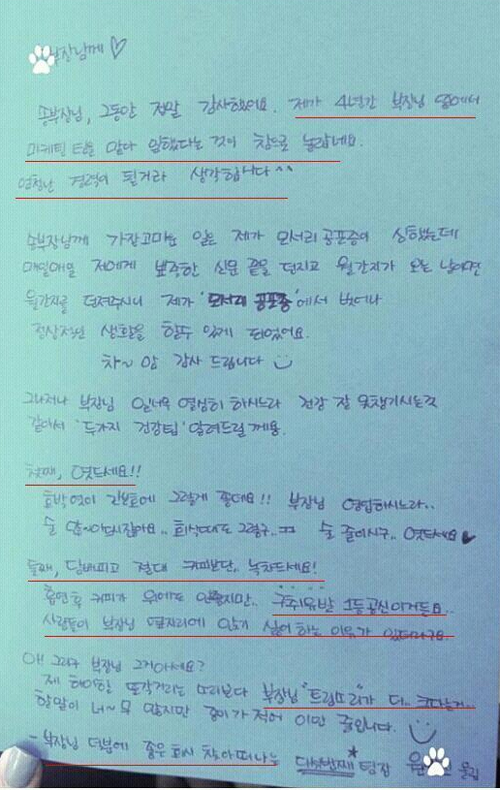 부장님께 ♡
송부장님, 그동안 정말 감사했어요. 제가 4년간 부장님 옆에서
마케팅 팀을 맡아 일했다는 것이 참으로 놀랍네요.
엄청난 경력이 될거라 생각합니다^^
송부장님께 가장고마운 일은 제가 모서리공포증이 심했는데
매일매일 저에게 뾰족한 신문 끝을 던지고 월간지가 오는 날이면
월간지를 던져주시니 제가 '모서리 공포증'에서 벗어나
정상적인 생활을 할수 있게 되었어요.
차~암 감사 드립니다
그나저나 부장님 일너무 열심히 하시느라 건강 잘 못챙기시는것
같아서 '두가지 건강팁' 알려드릴게용.
첫째, 엿드세요!!
호박엿이 간보호에 그렇게 좋대요!! 부장님 영업하시느라..
술 많~이드시잖아요.. 회식때도 그렇구..ㅠㅠ 술 줄이시구.. 엿드세요♥
둘째, 담배피고 절대 커피보단.. 녹차드세요!
흡연후 커피가 위에도 안좋지만.. 구취유발 1등공신이거든요..
사람들이 부장님 옆자리에 앉기 싫어하는 이유가 있더라구요.
아! 그리구 부장님 그거아세요?
제 하이힐 또각거리는 소리보다 부장님 "트림소리"가 더.. 크답니다..
할말이 너~무 많지만 종이가 적어 이만 줄입니다.
- 부장님 덕분에 좋은 회사 찾아떠나는 다섯번째* 팀장 윤 올림